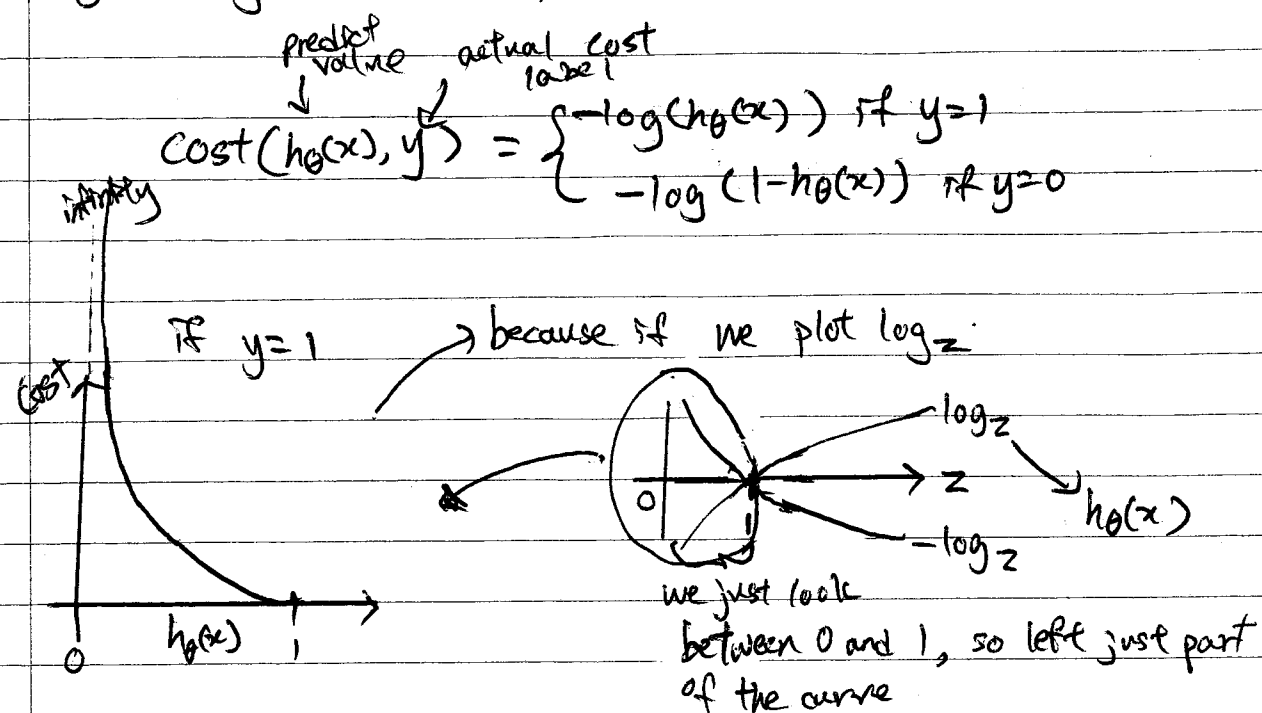 predict value
actual cost label
cost(hθ(x), y) = { -log(hθ(x)) if y=1
-log(1-hθ(x)) if y=0
infinitely
if y=1
because if we plot log z
cost
log z
0
1
z
hθ(x)
-log z
0
hθ(x)
1
we just look
between 0 and 1, so left just part
of the curve